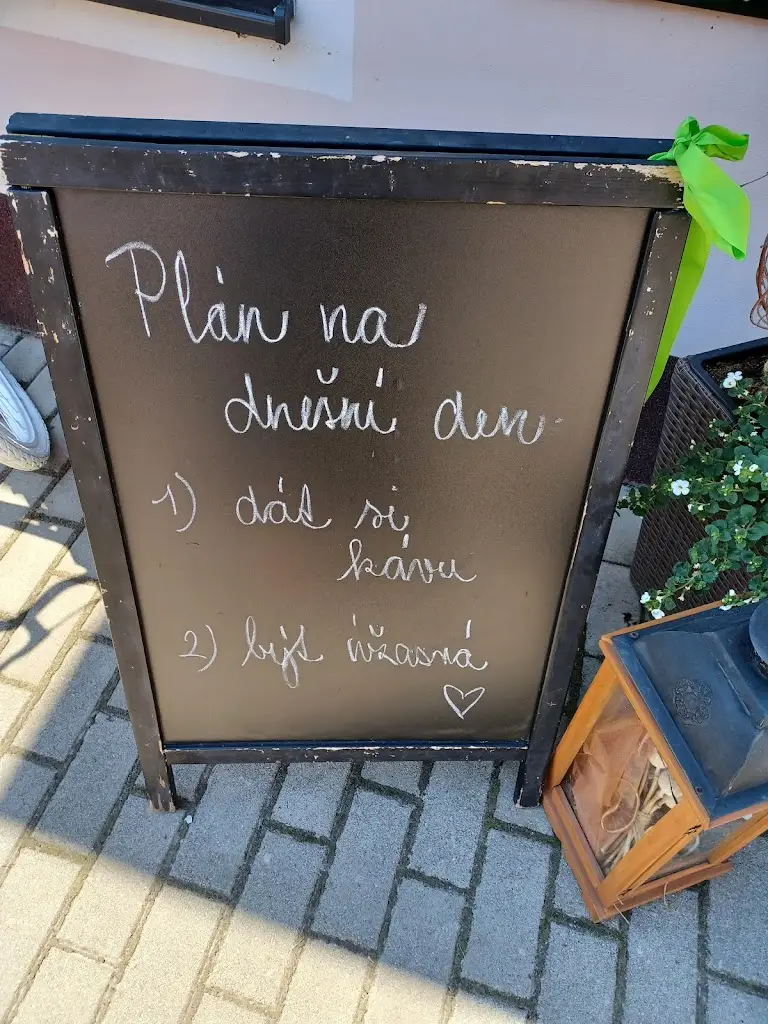 Plán na
dnešní den
1) dát si
kávu
2) být úžasná